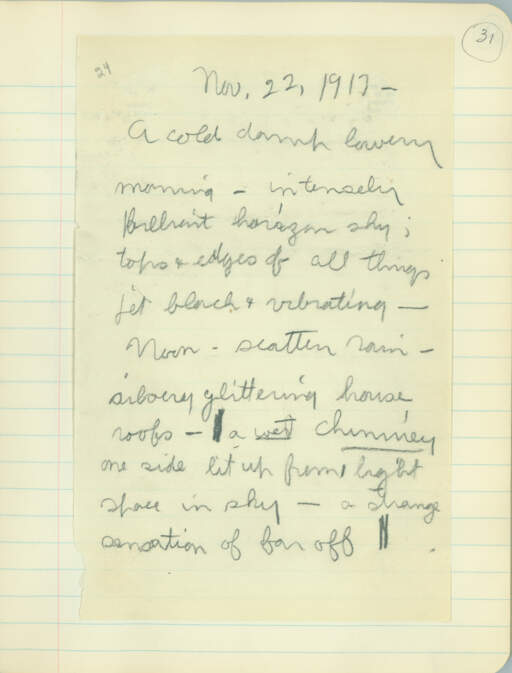 31
24
Nov. 22, 1917 -
A cold damp lowery
morning - intensely
Brilliant horizon sky;
tops & edges of all things
jet black & vibrating —
Noon - scatten rain -
silvery glittering house
roofs - a wet chimney
one side lit up from light
space in sky — a strange
sensation of far off